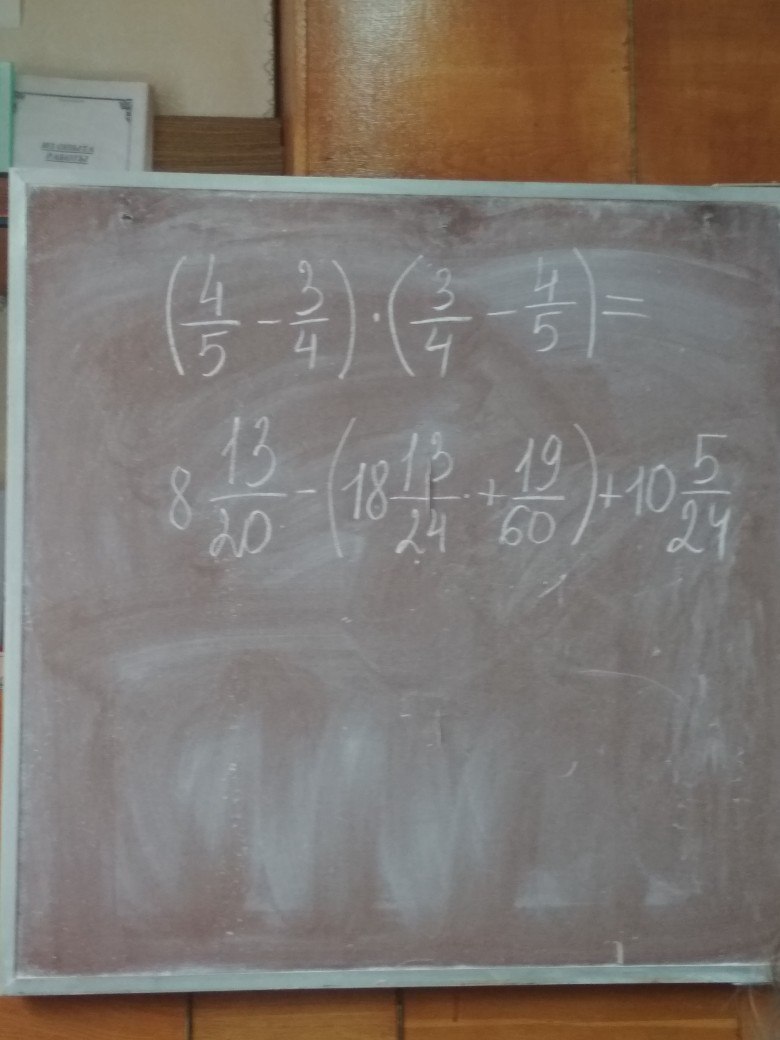 (4/5 - 3/4) · (3/4 - 4/5) =
8 13/20 - (18 13/24 + 19/60) + 10 5/24